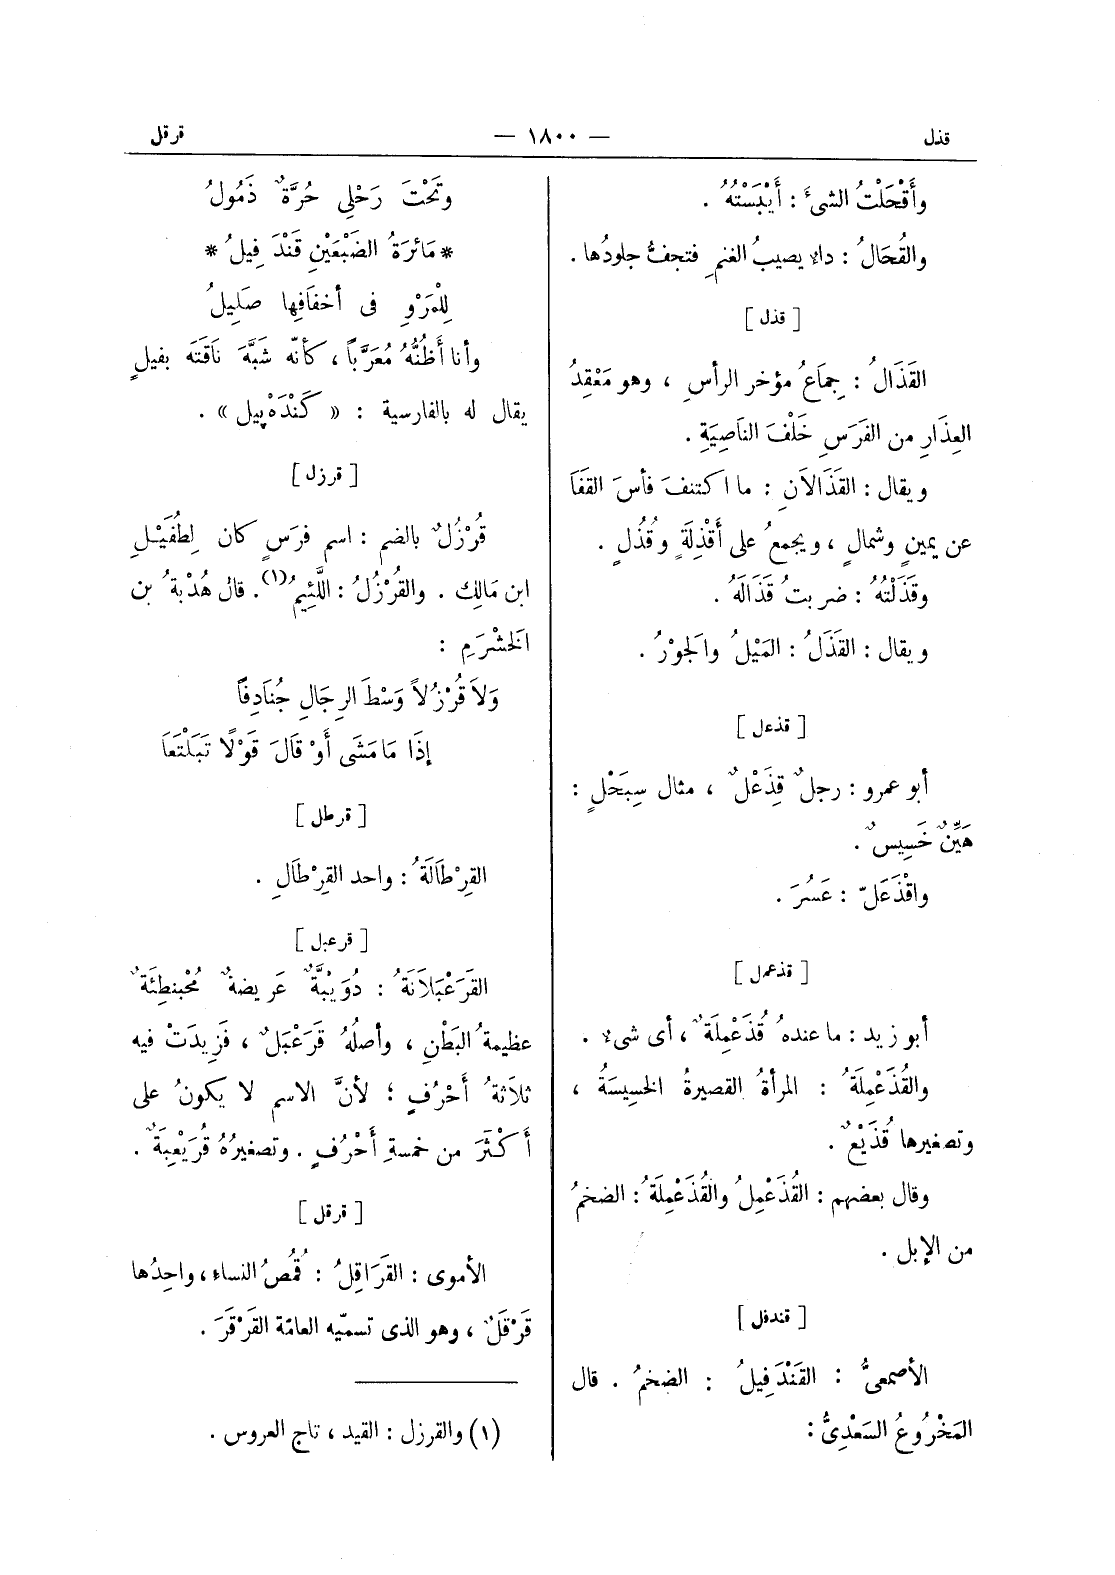 قذل — ١٨٠٠ — قرقل
وأَقْحَلْتُ الشىءَ : أَيْبَسْتُهُ .
والقُحَالُ : دالا يصيبُ الغنمِ فتجفُّ جلودُها .
[ قذل ]
القَذَالُ : جِمَاعُ مؤخر الرأسِ ، وهو مَعْقِدُ
العِذَارِ من الفَرَسِ خَلْفَ النَاصِيَةِ .
ويقال : القَذَالاَنِ : ما اكتنفَ فأسَ القفَا
عن يمينٍ وشمالٍ ، ويجمعُ على أَقْذِلَةٍ وقُذُلٍ .
وقَذَلْتُهُ : ضربتُ قَذَالَهُ .
ويقال : القَذَلُ : المَيْلُ والجَوْرُ .
[ قذعل ]
أبو عمرو : رجلٌ قِذَعْلٌ ، مثال سِبَحْلٍ :
هَيِّنٌ خَسِيسٌ .
واقْذَعَلّ : عَسُرَ .
[ قذعمل ]
أبو زيد : ما عندهُ قُذَعْمِلَةٌ ، أى شىء .
والقُذَعْمِلَةُ : المرأةُ القصيرةُ الخسِيسَةُ ،
وتصغيرها قُذَيْعٌ .
وقال بعضهم : القُذَعْمِلُ والقُذَعْمِلَةُ : الضخمُ
من الإبل .
[ قندفل ]
الأصمعىُّ : القَنْدَفِيلُ : الضخمُ . قال
المَخْرُوعُ السَعْدِىُّ :
وتَحْتَ رَحْلِى حُرَّةٌ ذَمُولُ
* مَائرَةُ الضَبْعَيْنِ قَنْدَفِيلُ *
لِلْمَرْوِ فى أخفَافِها صَلِيلُ
وأنا أَظُنُّهُ مُعَرَّباً ، كأنّه شَبَّهَ نَاقَتَه بفيلٍ
يقال له بالفارسية : « كَنْدَهْ پِيل » .
[ قرزل ]
قُرْزُلٌ بالضم : اسم فرَسٍ كان لِطُفَيْلِ
ابن مَالِك . والقُرْزُلُ : اللَّئِيمُ(١) . قال هُدْبةُ بن
الخَشْرَمِ :
وَلاَ قُرْزُلاً وَسْطَ الرِجَالِ جُنَادِفاً
إذَا مَا مَشَى أَوْ قَالَ قَوْلًا تَبَلْتَعَا
[ قرطل ]
القِرْطَالَةُ : واحد القِرْطَالِ .
[ قرعبل ]
القَرَعْبَلاَنَةُ : دُوَيْبَّةٌ عَريضةٌ مُحْبنطِئَةٌ
عظيمةُ البَطْنِ ، وأصلُهُ قَرَعْبَلٌ ، فَزِيدَتْ فيه
ثلاَثةُ أَحْرُفٍ ؛ لأنَّ الاسم لا يكونُ على
أَكْثَرَ من خمسةِ أَحْرُفٍ . وتصغيرُهُ قُرَيْعِبَةٌ .
[ قرقل ]
الأموى : القَرَاقِلُ : قُمُصُ النساءِ ، واحِدُها
قَرْقَلٌ ، وهو الذى تسمّيه العامّة القَرْقَرَ .
(١) والقرزل : القيد ، تاج العروس .